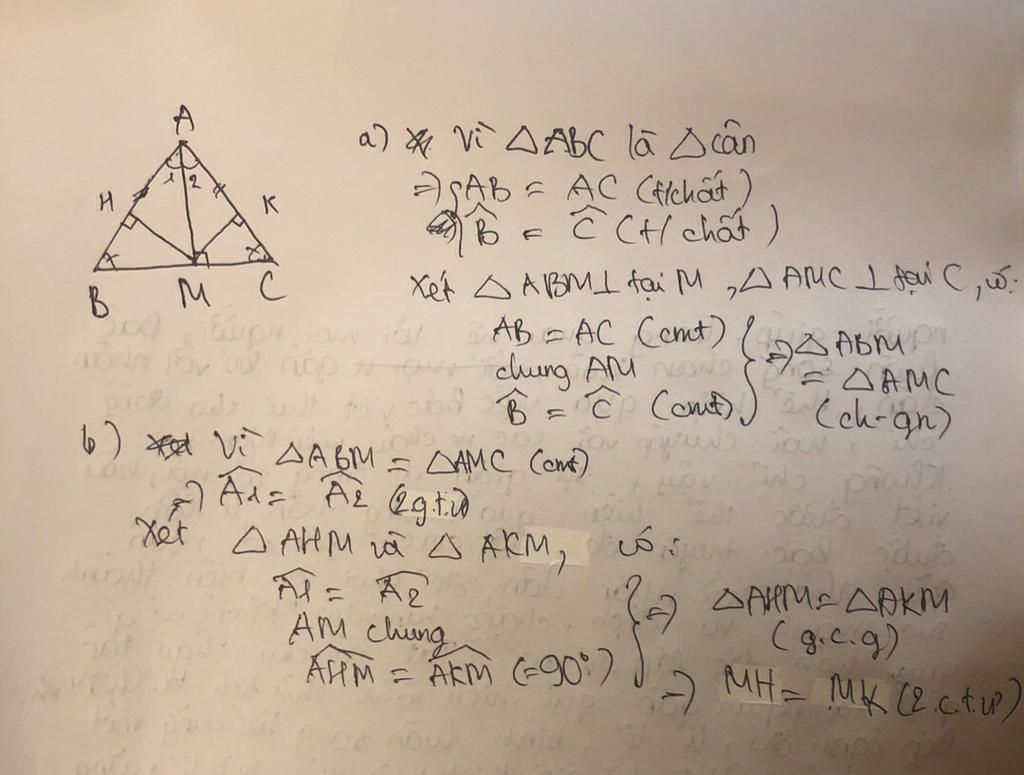 A
1 2
H K
x x
B M C
a) Vì △ABC là △cân
⇒ { AB = AC (t/chất)
B̂ = Ĉ (t/ chất)
Xét △ABM ⊥ tại M, △AMC ⊥ tại C, có:
AB = AC (cmt)
chung AM
B̂ = Ĉ (cmt)
} ⇒ △ABM
= △AMC
(ch-gn)
b) Vì △ABM = △AMC (cmt)
⇒ Â1 = Â2 (2g.t.ư)
Xét △AHM và △AKM, có:
Â1 = Â2
AM chung
AHM = AKM (=90°)
} ⇒ △AHM = △AKM
(g.c.g)
⇒ MH = MK (2.c.t.ư)